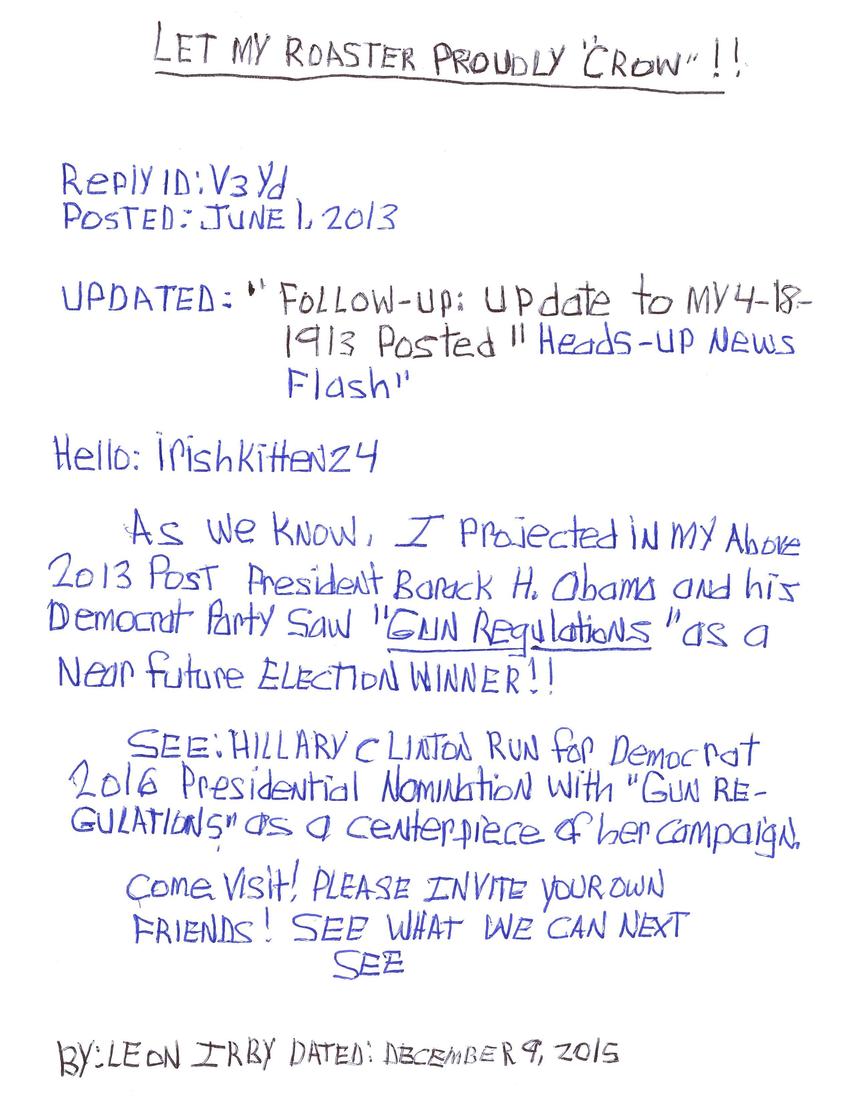 LET MY ROASTER PROUDLY "CROW" !!
Reply ID: V3Yd
POSTED: JUNE 1, 2013
UPDATED: " FOLLOW-UP: UPdate to MY 4-18-
1913 Posted " Heads-UP News
Flash"
Hello: IrishKitten24
As We KNOW, I Projected IN MY Above
2013 POST President Barack H. Obama and his
Democrat Party Saw "GUN Regulations "as a
Near future ELECTION WINNER!!
SEE: HILLARY CLINTON RUN for Democrat
2016 Presidential Nomination With "GUN RE-
GULATIONS" as a centerpiece of her campaign.
Come Visit! PLEASE INVITE YOUR OWN
FRIENDS! SEE WHAT WE CAN NEXT
SEE
BY: LEON IRBY DATED: DECEMBER 9, 2015